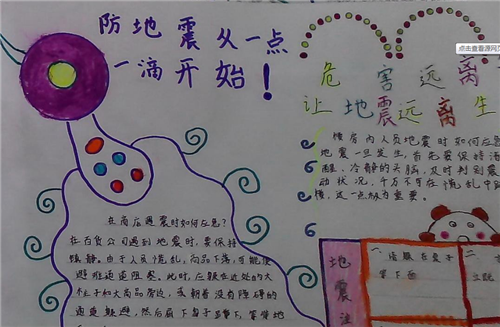 防地震从一点
一滴开始！
危害远离
让地震远离生
点击查看源网页
楼房内人员地震时如何应急?
地震一旦发生,首先要保持清
醒、冷静的头脑,及时判别震
动状况,千万不可在慌乱中跳
楼,这一点极为重要。
在商店遇震时如何应急?
在百货公司遇到地震时,要保持
镇静。由于人员慌乱,商品下落,可能使
避难通道阻塞。此时,应躲在近处的大
柱子和大商品旁边,或朝着没有障碍的
通道躲避,然后屈下身子蹲下,等待地
地震
一
桌子
下面
二